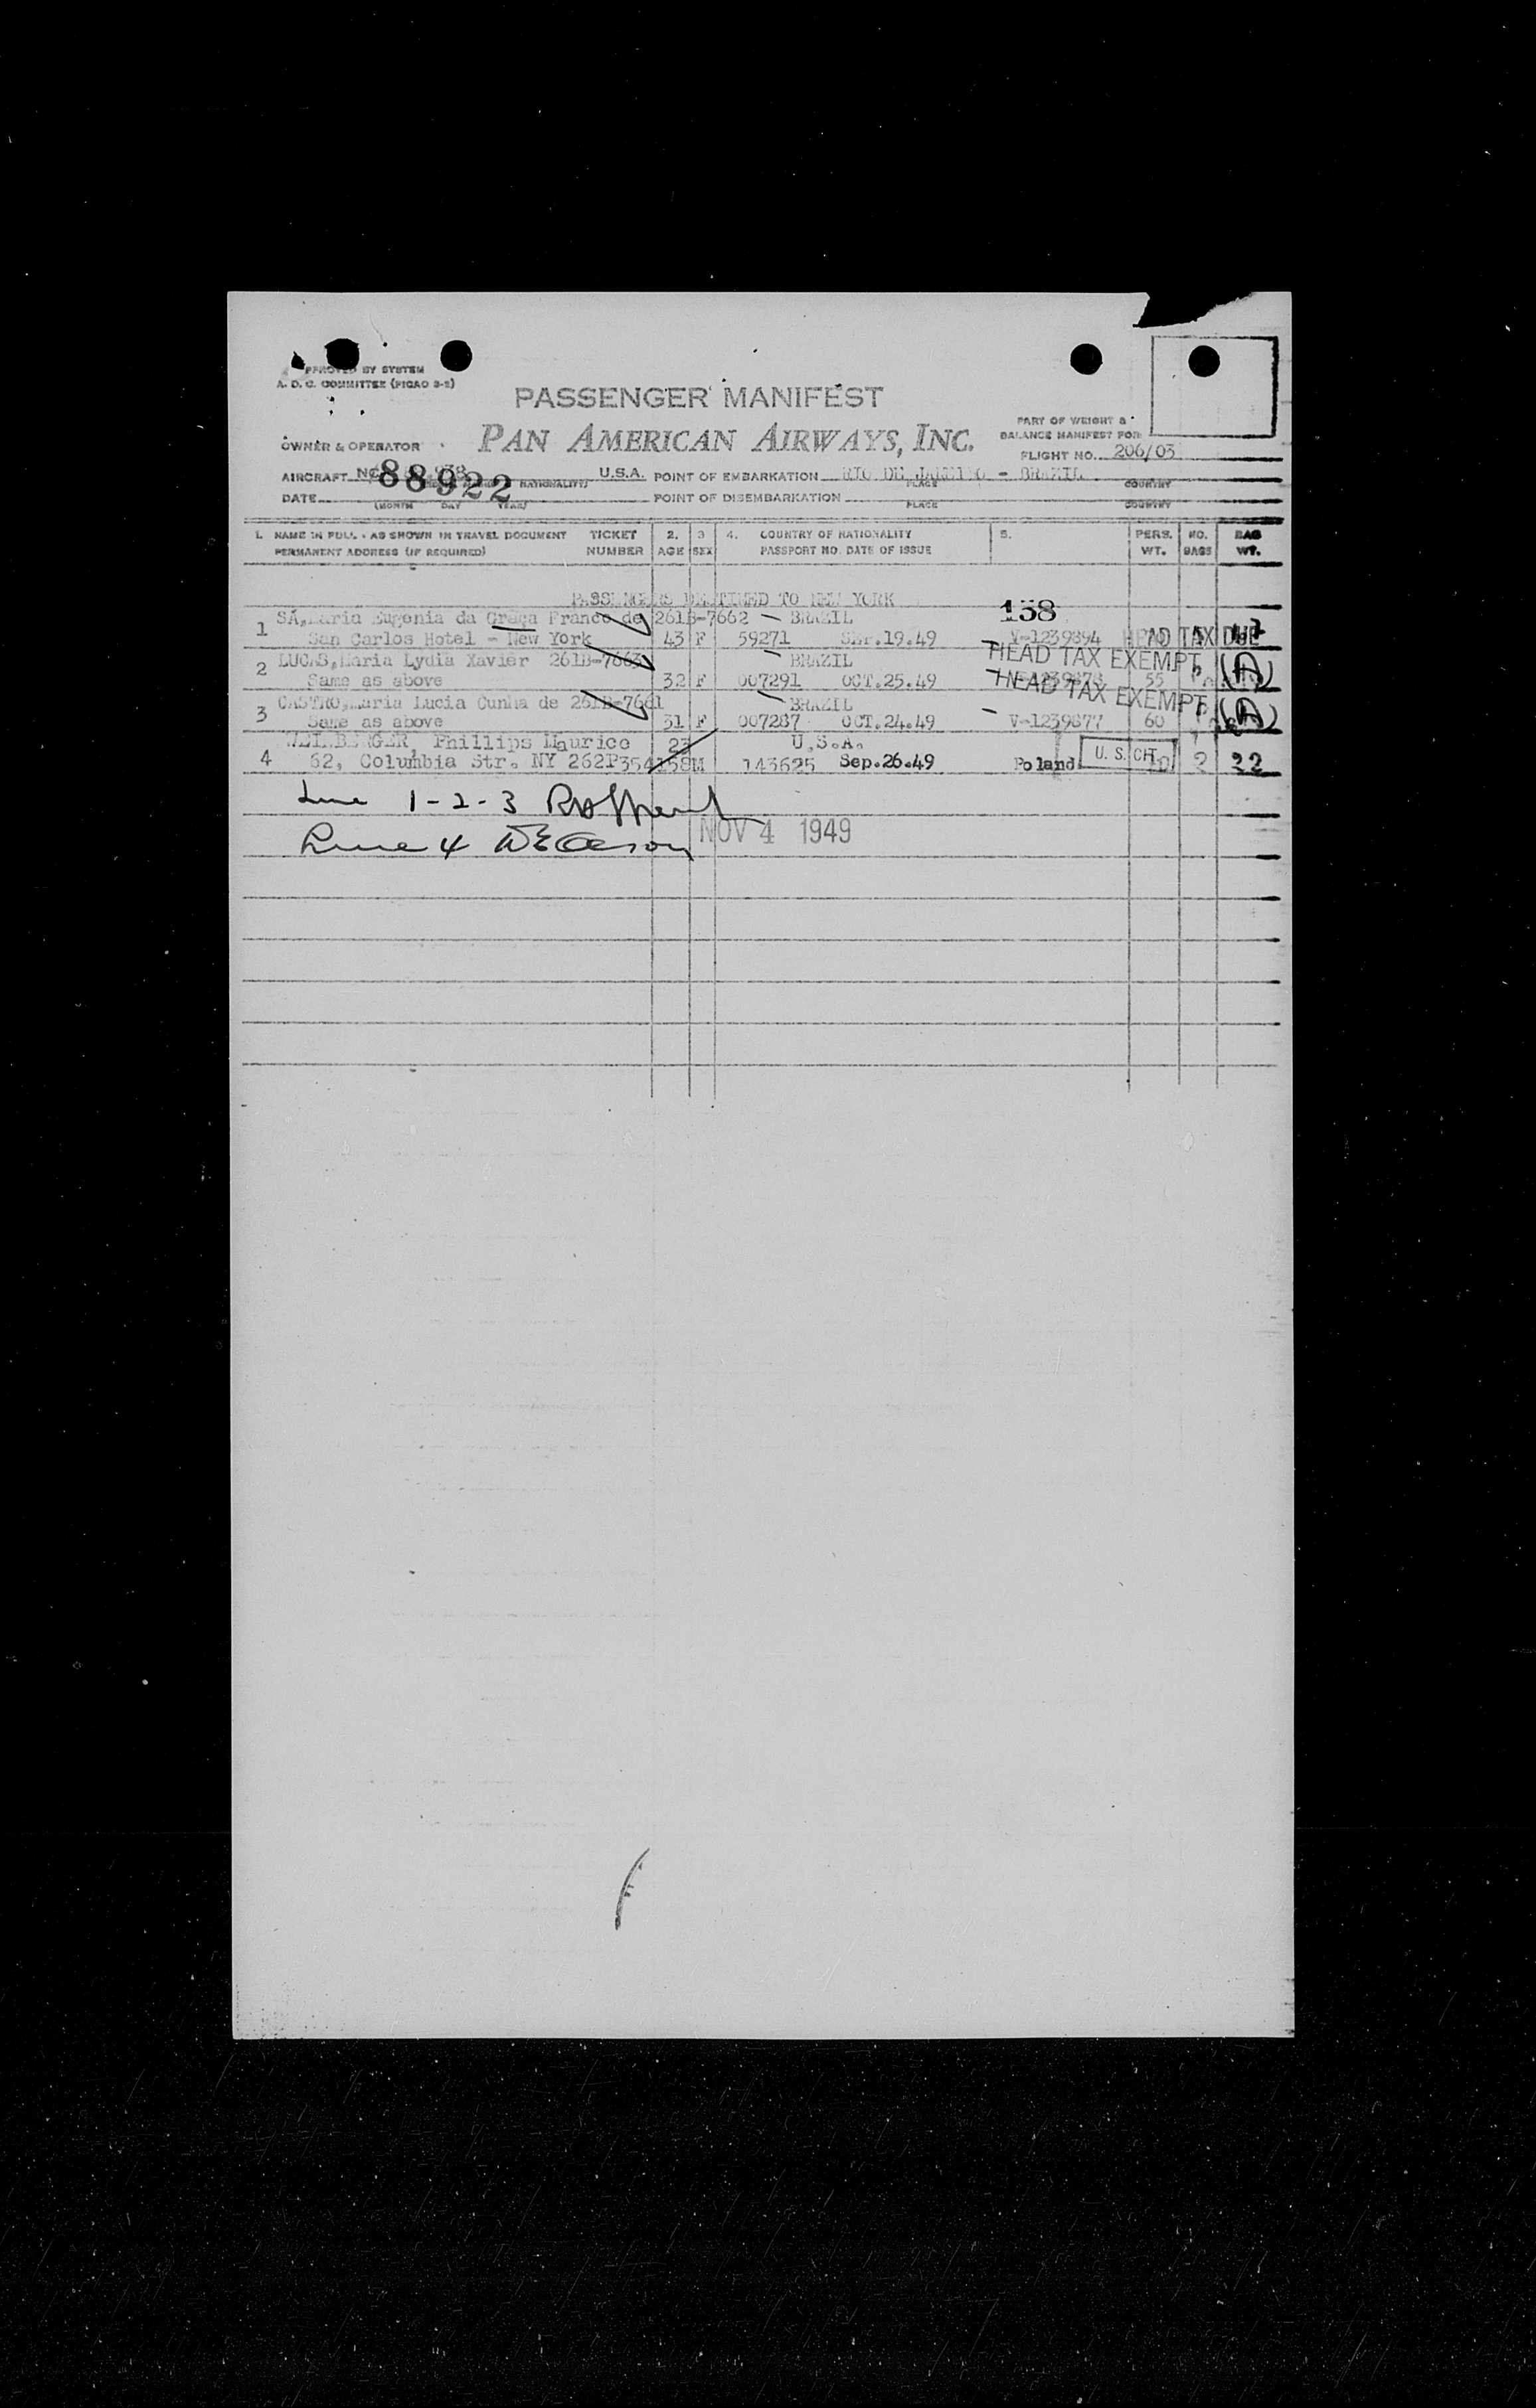 APPROVED BY SYSTEM
A. D. C. COMMITTEE (PICAO 3-2)
PASSENGER MANIFEST
OWNER & OPERATOR PAN AMERICAN AIRWAYS, INC.
PART OF WEIGHT &
BALANCE MANIFEST FOR:
FLIGHT NO. 206/03
AIRCRAFT NC 88922 U.S.A. POINT OF EMBARKATION RIO DE JANEIRO - BRAZIL
NATIONALITY) PLACE COUNTRY
DATE POINT OF DISEMBARKATION
(MONTH DAY YEAR) PLACE COUNTRY
1. NAME IN FULL - AS SHOWN IN TRAVEL DOCUMENT TICKET 2. 3 4. COUNTRY OF NATIONALITY 5. PERS. NO. BAG
PERMANENT ADDRESS (IF REQUIRED) NUMBER AGE SEX PASSPORT NO. DATE OF ISSUE WT. BAGS WT.
PASSENGERS DESTINED TO NEW YORK
158
1 SÁ, Maria Eugenia da Graça Franco de 261B-7662 BRAZIL
San Carlos Hotel - New York 43 F 59271 SEP.19.49 V-1239894 HEAD TAX DUE
2 LUCAS, Maria Lydia Xavier 261B-7663 BRAZIL HEAD TAX EXEMPT (A)
Same as above 32 F 007291 OCT.25.49 55
3 CASTRO, Maria Lucia Cunha de 261B-7661 BRAZIL HEAD TAX EXEMPT (A)
Same as above 31 F 007287 OCT.24.49 V-1239877 60
4 Phillips Maurice 23 U.S.A.
62, Columbia Str. NY 262P354158 M 143625 Sep.26.49 Poland U. S. CIT. 2 22
Line 1-2-3
Line 4
NOV 4 1949